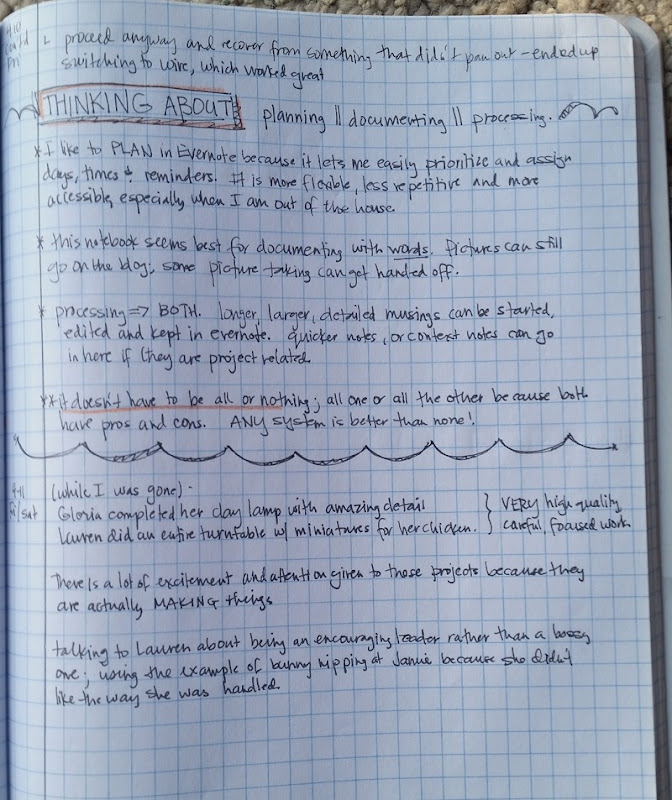 4/10
could
pn
↳ proceed anyway and recover from something that didn't pan out - ended up
switching to wire, which worked great
THINKING ABOUT: planning || documenting || processing.
* I like to PLAN in Evernote because it lets me easily prioritize and assign
days, times & reminders. It is more flexible, less repetitive and more
accessible, especially when I am out of the house.
* this notebook seems best for documenting with words. Pictures can still
go on the blog; some picture taking can get handed off.
* processing => BOTH. longer, larger, detailed musings can be started,
edited and kept in evernote. quicker notes, or context notes can go
in here if they are project related
** it doesn't have to be all or nothing; all one or all the other because both
have pros and cons. ANY system is better than none!
4/11
fri/sat
(while I was gone) -
Gloria completed her clay lamp with amazing detail
Lauren did an entire turntable w/ miniatures for her chicken. } VERY high quality
careful, focused work
There is a lot of excitement and attention given to those projects because they
are actually MAKING things
talking to Lauren about being an encouraging leader rather than a bossy
one; using the example of bunny nipping at Janie because she didn't
like the way she was handled.